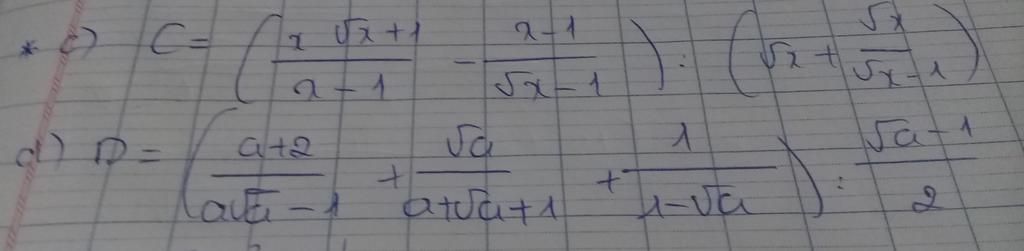 * c) C = ( (x√x+1)/(x-1) - (x-1)/(√x-1) ) : ( √x + √x/(√x-1) )
d) D = ( (a+2)/(a√a-1) + √a/(a+√a+1) + 1/(1-√a) ) : (√a-1)/2